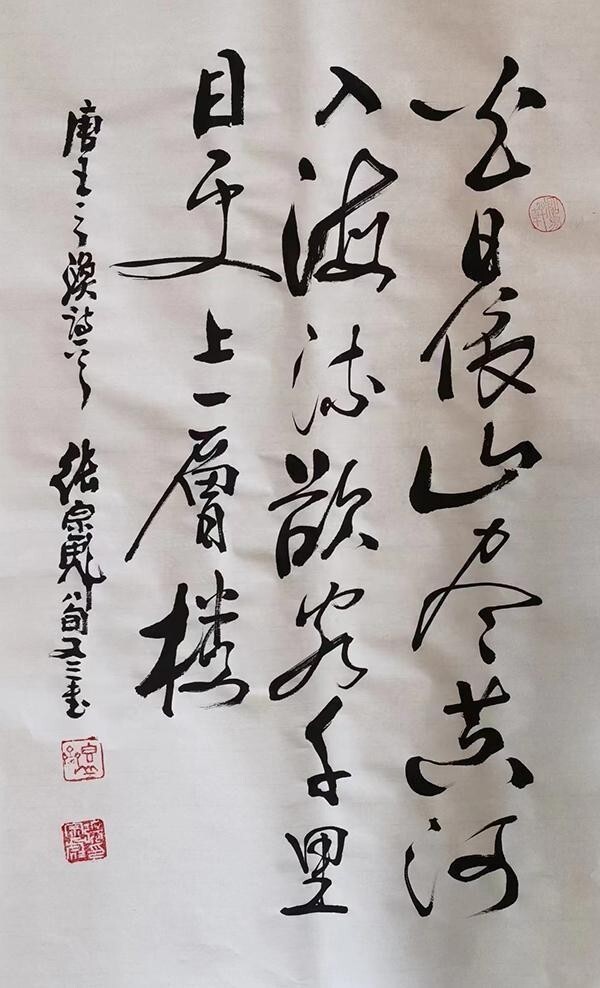 白日依山尽黄河
入海流欲穷千里
目更上一層楼
唐王之渙诗 张宗 八旬又三书